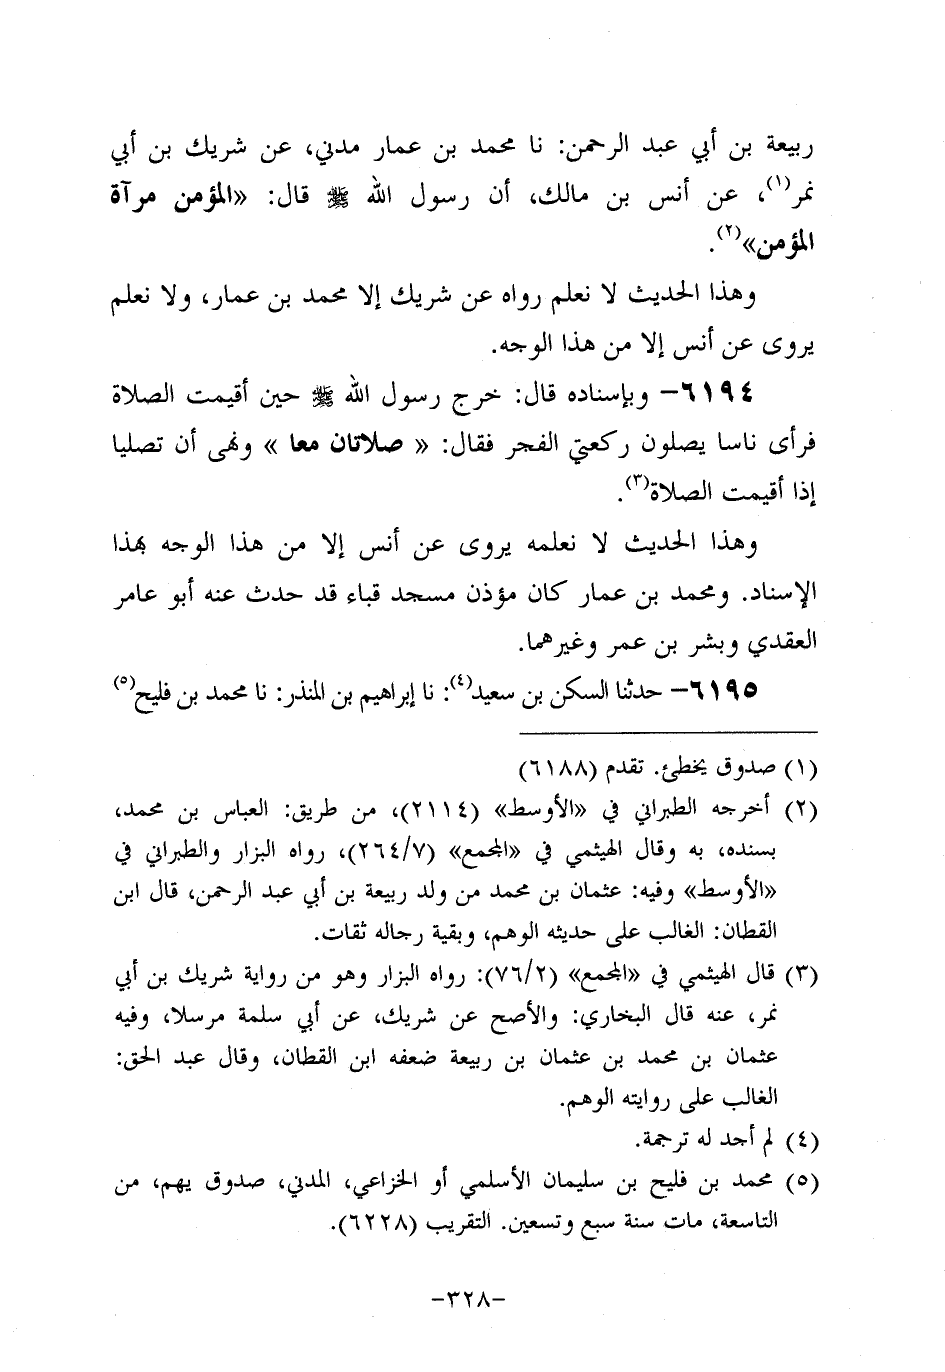 ربيعة بن أبي عبد الرحمن: نا محمد بن عمار مدني، عن شريك بن أبي
نمر(١)، عن أنس بن مالك، أن رسول الله ﷺ قال: «المؤمن مرآة
المؤمن»(٢).
وهذا الحديث لا نعلم رواه عن شريك إلا محمد بن عمار، ولا نعلم
يروى عن أنس إلا من هذا الوجه.
٦١٩٤- وبإسناده قال: خرج رسول الله ﷺ حين أقيمت الصلاة
فرأى ناسا يصلون ركعتي الفجر فقال: « صلاتان معا » ونهى أن تصليا
إذا أقيمت الصلاة(٣).
وهذا الحديث لا نعلمه يروى عن أنس إلا من هذا الوجه بهذا
الإسناد. ومحمد بن عمار كان مؤذن مسجد قباء قد حدث عنه أبو عامر
العقدي وبشر بن عمر وغيرهما.
٦١٩٥- حدثنا السكن بن سعيد(٤): نا إبراهيم بن المنذر: نا محمد بن فليح(٥)
(١) صدوق يخطئ. تقدم (٦١٨٨)
(٢) أخرجه الطبراني في «الأوسط» (٢١١٤)، من طريق: العباس بن محمد،
بسنده، به وقال الهيثمي في «المجمع» (٢٦٤/٧)، رواه البزار والطبراني في
«الأوسط» وفيه: عثمان بن محمد من ولد ربيعة بن أبي عبد الرحمن، قال ابن
القطان: الغالب على حديثه الوهم، وبقية رجاله ثقات.
(٣) قال الهيثمي في «المجمع» (٧٦/٢): رواه البزار وهو من رواية شريك بن أبي
نمر، عنه قال البخاري: والأصح عن شريك، عن أبي سلمة مرسلا، وفيه
عثمان بن محمد بن عثمان بن ربيعة ضعفه ابن القطان، وقال عبد الحق:
الغالب على روايته الوهم.
(٤) لم أجد له ترجمة.
(٥) محمد بن فليح بن سليمان الأسلمي أو الخزاعي، المدني، صدوق يهم، من
التاسعة، مات سنة سبع وتسعين. التقريب (٦٢٢٨).
-٣٢٨-